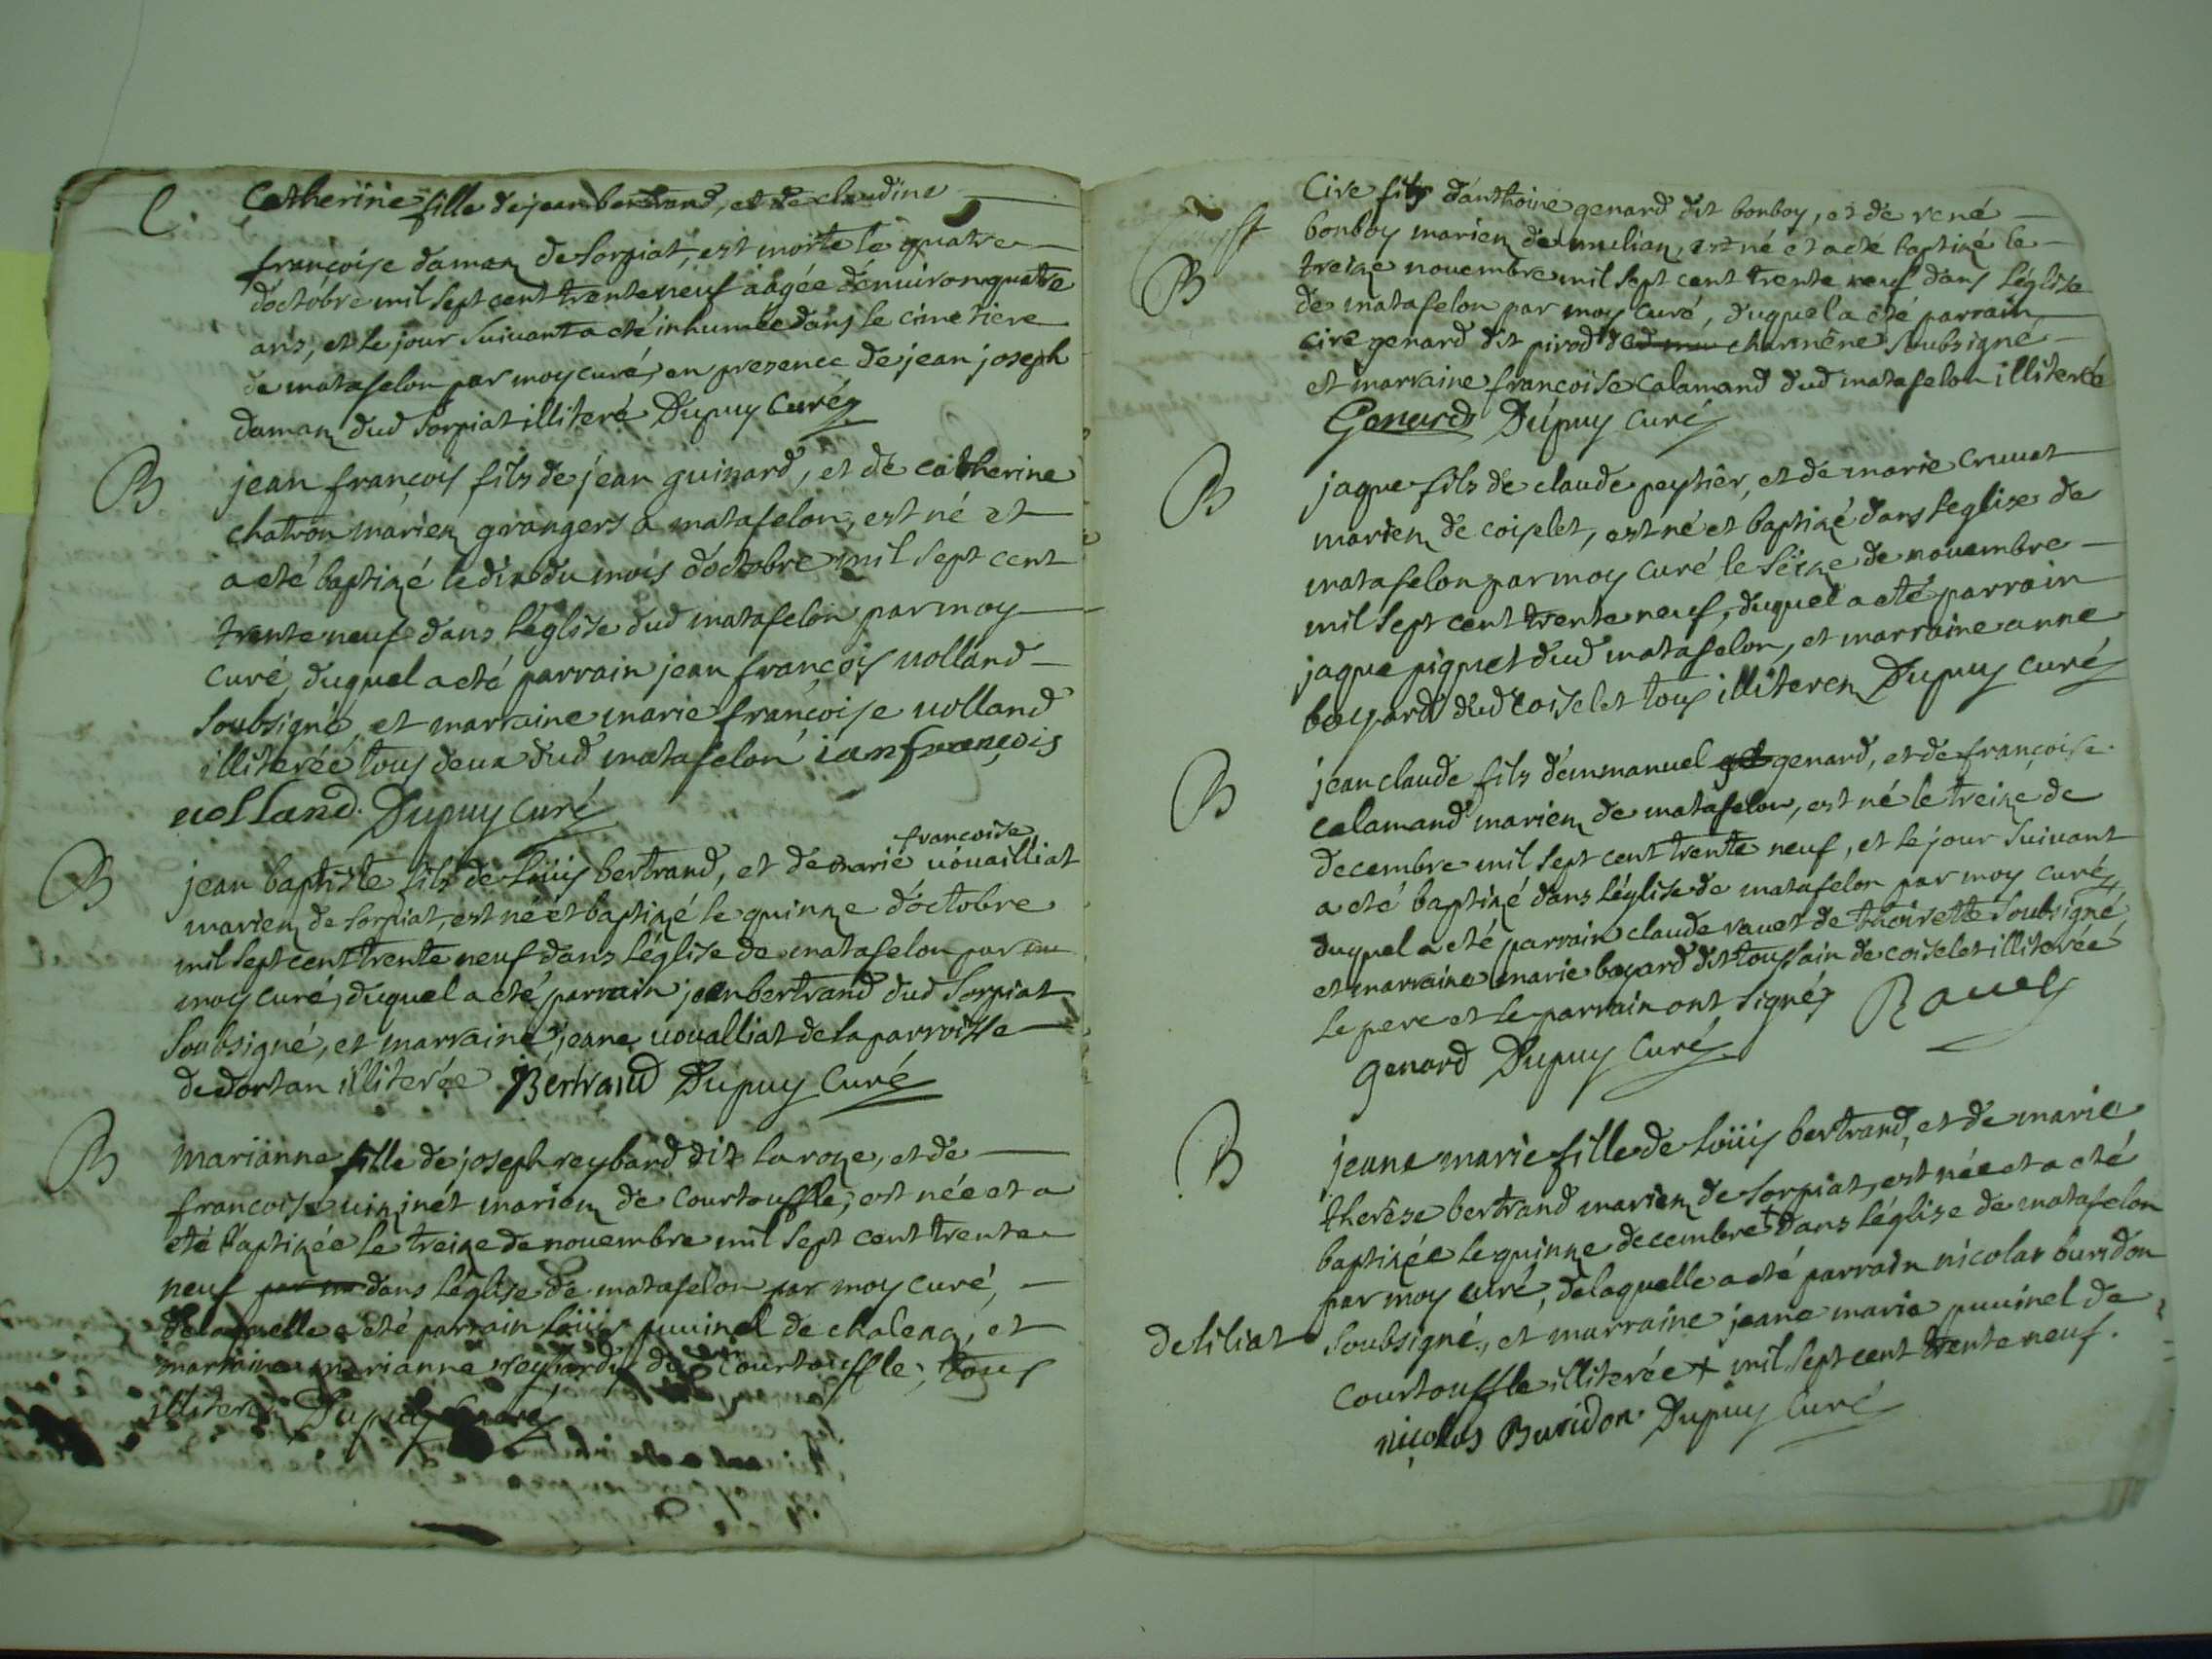 C
Catherine fille de jean bertrand, et de claudine
françoise daman de Sorpiat, est morte le quatre
d'octobre mil sept cent trente neuf aagée d'environ quatre
ans, et le jour Suivant a eté inhumée dans le cimetiere
de matafelon par moy curé, en presence de jean joseph
daman dud Sorpiat illiteré Dupuy Curé
B
jean françois fils de jean guinard, et de catherine
chatron mariez grangers a matafelon, est né et
a eté baptizé le dix du mois d'octobre mil sept cent
trente neuf dans l'église dud matafelon par moy
Curé, duquel a eté parrain jean françois uolland
Soubsigné, et marraine marie françoise uolland
illiterée tous deux dud matafelon ian françois
uolland. Dupuy Curé
B
françoise
jean baptiste fils de Loüis bertrand, et de marie uouailliat
mariez de Sorpiat, est né et baptizé le quinze d'octobre
mil sept cent trente neuf dans l'église de matafelon par
moy curé, duquel a eté parrain jean bertrand dud Sorpiat
Soubsigné, et marraine jeane uoualliat de la parroisse
de dortan illiterée Bertrand Dupuy Curé
B
Marianne fille de joseph reybard dit la roze, et de
francoise uinzinet mariez de Courtouffle, est née et a
eté baptizée le treize de nouembre mil Sept cent trente
neuf dans l'église de matafelon par moy curé,
de laquelle a eté parrain Loüis puuinel de chalena, et
marraine marianne reybard dud Courtouffle, tous
illiterez Dupuy Curé
B
Cire fils d'anthoine genard dit bonboy, et de rené
bonboy mariez de mulian, est né et a eté baptizé le
treize nouembre mil sept cent trente neuf dans l'église
de matafelon par moy Curé, duquel a eté parrain
cire genard dit pirod de charmêne Soubsigné
et marraine françoise Calamand dud matafelon illiterée
Genard Dupuy Curé
B
jaque fils de claude peytier, et de marie cruuat
mariez de coiselet, est né et baptizé dans leglise de
matafelon par moy curé le Seize de nouembre
mil sept cent trente neuf, duquel a eté parrain
jaque piquet dud matafelon, et marraine anne
bayard dud coiselet tous illiterez Dupuy Curé
B
jean claude fils d'emmanuel genard, et de françoise
calamand mariez de matafelon, est né le treize de
decembre mil sept cent trente neuf, et le jour Suivant
a eté baptizé dans l'église de matafelon par moy curé,
duquel a eté parrain claude rauet de thoirette Soubsigné
et marraine marie bayard dit toussain de coiselet illiterée
Le pere et le parrain ont Signéz Rauet
genard Dupuy Curé
B
jeane marie fille de Loüis bertrand, et de marie
therêse bertrand mariez de Sorpiat, est née et a eté
baptizée le quinze decembre + dans l'église de matafelon
par moy curé, de laquelle a eté parrain nicolas buridon
de siliat Soubsigné, et marraine jeane marie puuinel de
Courtouffle illiterée + mil sept cent trente neuf.
nicolas Buridon. Dupuy Curé